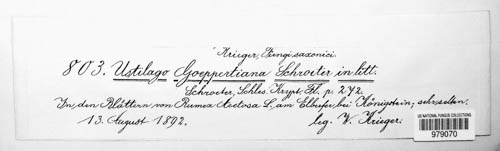 Krieger, Fungi saxonici.
803. Ustilago Goeppertiana Schroeter in litt.
Schroeter, Schles. Krypt. Fl. p. 272.
In den Blättern von Rumex Acetosa L, am Elbufer bei Königstein; sehr selten.
13. August 1892. leg. W. Krieger.
US NATIONAL FUNGUS COLLECTIONS
979070